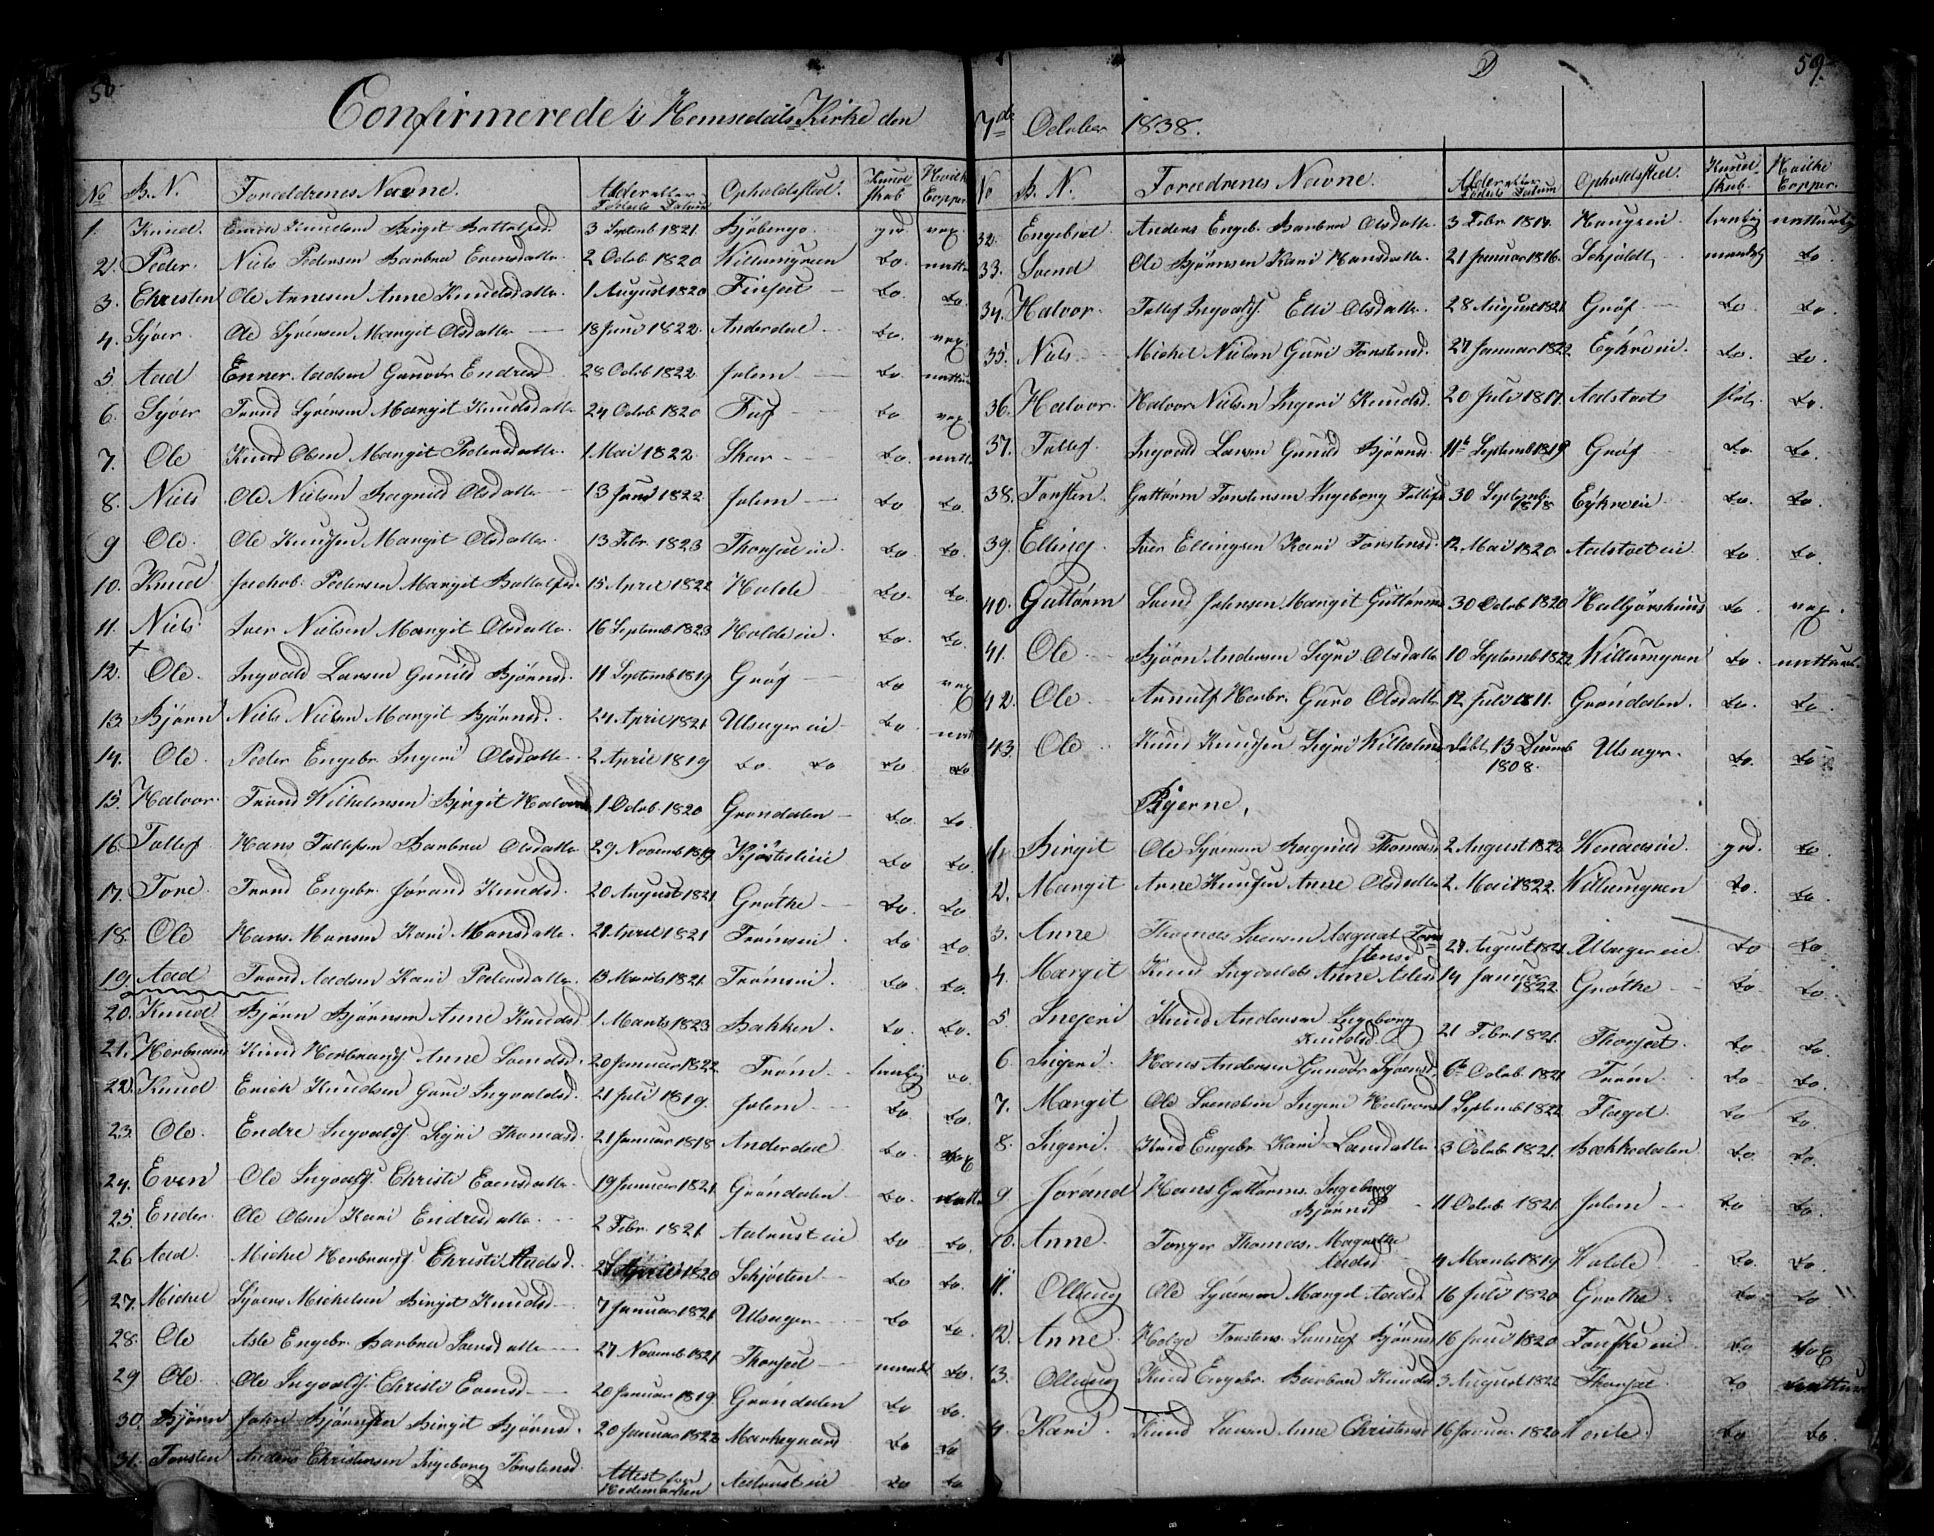 58
Confirmerede i Hemsedals Kirke den
No B. N. Foræeldrenes Navne. Alder eller Fødsels Datum Opholdssted. Kund skab Hvilke Copper
1. Knud. Knudsen Birgit Battolfsd. 3 Septemb 1821. gd vax.
2. Peder. Niels Pedersen Barbra Evensdatter 2 Octob 1820 Killumgren Do. natt
3. Christen Ole Arnesen Anne Knudsdatter 1 August 1820 Finset Do. Do.
4. Syver Ole Syversen Margit Olsdatter 18 Juni 1822. Anderdal Do. vax.
5. Aad Enner Aadsen Gunvor Endresd. 28 Octob 1822. Jolem Do. nattur
6. Syver Trond Syversen Margit Knudsdatter 24 Octob 1820 Fus Do vax.
7. Ole Knud Olsen Margit Pedersdatter 1 Mai 1822. Skar Do. natt
8. Niels Ole Nielsen Ragnild Olsdatter 13 Juni 1822. Jolem Do Do.
9 Ole. Ole Knudsen Margit Olsdatter. 13 Febr. 1823 Thorset eie. Do. Do.
10. Knud Jachob. Pedersen Margit Battolfsd. 15 April 1822 Holde Do. Do.
11. Niels Iver Nielsen Margit Olsdatter. 16 Septemb 1823 Holde eie. Do. Do.
12. Ole. Ingvald Larsen Gunild Bjørnsd. 11 Septemb 1819 Grøf Do vax
13. Bjørn Niels Nielsen Margit Bjørnsd. 24 April 1821. Ulsager eie Do. natt
14. Ole. Peder Engebr. Ingeri Olsdatter 2 April 1819 Do. Do Do. Do
15. Halvor. Trond Wilhelmsen Birgit Halvorsd 1 Octob. 1820 Grøndalen Do. Do.
16. Tollef Hans Tollefsen Barbra Olsdatter 29 Novemb 1819 Do Do.
17. Tore. Trond Engebr. Jørand Knudsd. 20 August 1821 Grøthe Do. Do
18. Ole Hans. Hansen Kari Hansdatter. 21 April 1821 Trømeie. Do Do
19. Aad Trond Aadsen Kari Pedersdatter. 13 Marts 1821. Trømeie. Do. Do.
20. Knud Bjørn Bjørnsen Anne Knudsd. 1 Marts 1823 Bakken. Do. Do.
21. Herbrand Knud Herbrands. Anne Svendsd. 20 Januar 1822. Trøm. tarvlig Do.
22. Knud Erick Knudsen Guri Ingvaldsd. 21 Juli 1819. Jolem Do Do.
23. Ole. Endre Ingvalds. Sigri Thomasd. 21 Januar 1818 Anderdal Do. vax
24. Even Ole Ingvalds. Christi Evensdatter. 19 Januar 1821 Grøndalen Do. natt
25. Ender. Ole Olsen Kari Endresdatter. 2 Febr. 1821. Aalrust eie Do Do.
26. Aad. Michel Herbrands. Christi Aadsd. 1820 Schjøtten Do Do.
27. Michel Syvers Michelsen Birgit Knudsd. 7 Januar 1821. Ulsager Do Do.
28. Ole Asle Engebr. Barbra Svensdatter 27 Novemb 1821 Thorset maadel Do.
29 Ole Ole Ingvalds. Christi Evensd. 20 Januar 1819. Grøndalen Do Do.
30. Bjørn John Bjørnsen Birgit Bjørnsd. 20 Januar 1822 Markegaard Do Do
31. Torsten Anders Christensen Ingeborg Torstensd. Attest fra Hedemarken Aalrust eie Do Do
59.
7de October 1838.
No B. N. Forældrenes Navne. Alder eller Fødsels Datum Opholdssted. Kund skab. Hvilke Copper.
32. Engebret Anders Engeb. Barbra Olsdatter 3 Febr. 1818. Haugeeie tarvlig natturlig
33. Svend Ole Bjørnsen Kari Hansdatter. 21 Januar 1816. Schjoldt maadelig Do.
34. Halvor. Tollef Ingvalds. Elli Olsdatter. 28 August 1821 Grøf Do. Do.
35. Niels Michel Nielsen Guri Torstensd. 27 Januar 1822 Eykreeie. Do. Do.
36. Halvor. Halvor Nielsen Ingeri Knudsd. 20 Juli 1817. Aalstvet slet. Do.
37. Tollef. Ingvald Larsen Gunild Bjørnsd. 11te Septemb 1819 Grøf Do. Do.
38. Torsten. Guttorm Torstensen Ingeborg Tollefsd 30 Septemb. 1818. Eykreeie Do. Do.
39. Elling. Iver Ellingsen Kari Torstensd. 12 Mai 1820. Aalstvet eie Do. Do
40. Guttorm Svend Johnsen Margit Guttormsd 30 Octob 1820 Do. vax.
41. Ole Bjørn Andersen Sigri Olsdatter 10 Septemb 1822 Killumgren Do. natturl.
42. Ole Arnulf Herbr. Guro Olsdatter 12 Juli 1811. Grøndalen. Do. Do.
43. Ole Knud Knudsen Sigri Wilhelmsd døbt 13 Decemb 1808. Ulsager. Do. Do
Pigerne.
1. Birgit Ole Syversen Ragnild Thomasd 2 August 1822 gd. Do.
2. Margit Arne Knudsen Anne Olsdatter 2 Mai 1822. Killumgren Do. Do.
3. Anne Thomas Svensen Aagaat Torstensd 27 August 1821. Ulsager eie Do Do
4. Margit Knud Ingvalds. Anne Aslesd 14 Januar 1822. Grøthe Do Do.
5 Ingeri Knud Andersen Ingeborg Knudsd. 21 Febr. 1821. Thorset. Do Do.
6 Ingeri. Hans Andersen Gunvor Syversd. 6te Octob. 1821 Trøm. Do Do.
7. Margit Ole Svendsen Ingeri Halvorsd 1 Septemb 1822. Flaget. Do Do.
8. Ingeri. Knud Engebr. Kari Larsdatter. 3 Octob 1821. Bækkedalen Do. Do.
9 Jørand Hans Guttorms. Ingeborg Bjørnsd 11 Octob 1821. Jolem Do Do.
10. Anne. Torger Thomas. Magnille Aadsd 4 Marts 1819 Holde Do. Do.
11. Ollaug Ole Syversen Margit Aadsd. 16 Juli 1820 Grøthe Do. Do
12. Anne Helge Torstens. Bjørnsd 16 Juni 1820 eie Do vax
13. Ollaug Knud Engebr. Barbra Knudsd 3 August 1822 Thorset. Do nattur
Kari. Knud Larsen Anne Christensd 16 Januar 1820 Do Do.